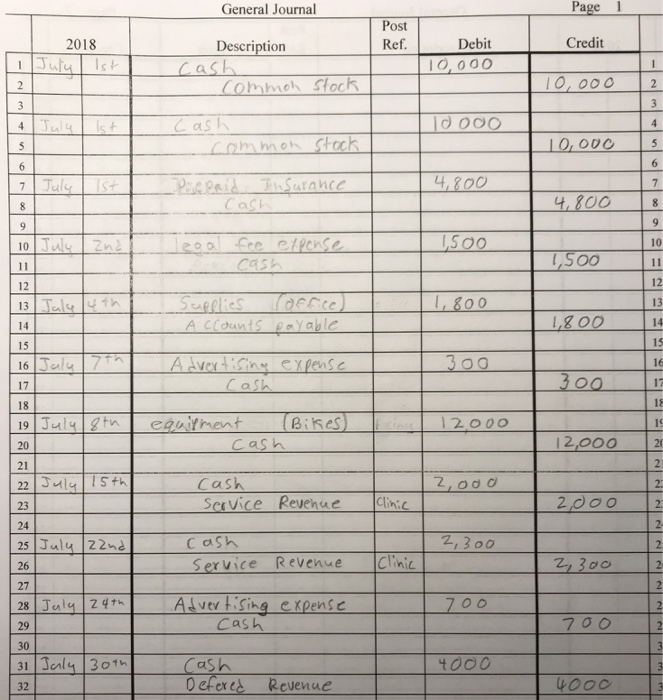 General Journal Page 1
2018 Description Post Ref. Debit Credit
1 July 1st Cash 10,000 1
2 Common Stock 10,000 2
3 3
4 July 1st Cash 10000 4
5 Common Stock 10,000 5
6 6
7 July 1st Prepaid Insurance 4,800 7
8 Cash 4,800 8
9 9
10 July 2nd legal fee expense 1,500 10
11 Cash 1,500 11
12 12
13 July 4th Supplies (office) 1,800 13
14 Accounts payable 1,800 14
15 15
16 July 7th Advertising expense 300 16
17 Cash 300 17
18 18
19 July 8th equipment (Bikes) 12000 19
20 Cash 12,000 20
21 2
22 July 15th Cash 2,000 2
23 Service Revenue Clinic 2,000 2
24 2
25 July 22nd Cash 2,300 2
26 Service Revenue Clinic 2,300 2
27 2
28 July 24th Advertising expense 700 2
29 Cash 700 2
30 3
31 July 30th Cash 4000 3
32 Defered Revenue 4000 3